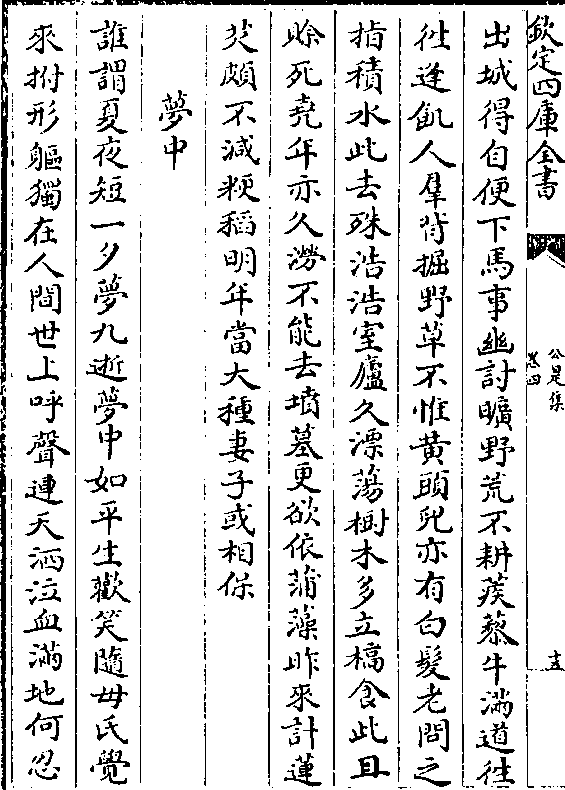 欽定四庫全書
公是集
卷四
十五
出城得自便下馬事幽討曠野荒不耕蒺藜半滿道往
徃逢飢人羣背掘野草不惟黄頭兒亦有白髮老問之
指積水此去殊浩浩室廬久漂蕩樹木多立槁食此且
賒死堯年亦久澇不能去墳墓更欲依蒲藻昨來計蓮
芡頗不減粳稻明年當大種妻子或相保
夢中
誰謂夏夜短一夕夢九逝夢中如平生歡笑隨母氏覺
來拊形軀獨在人間世上呼聲連天洒泣血滿地何忍